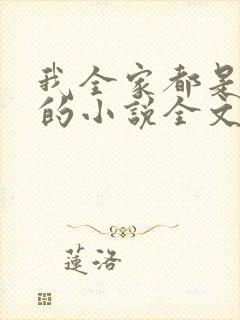 我全家都是
的小說全文
蓮洛